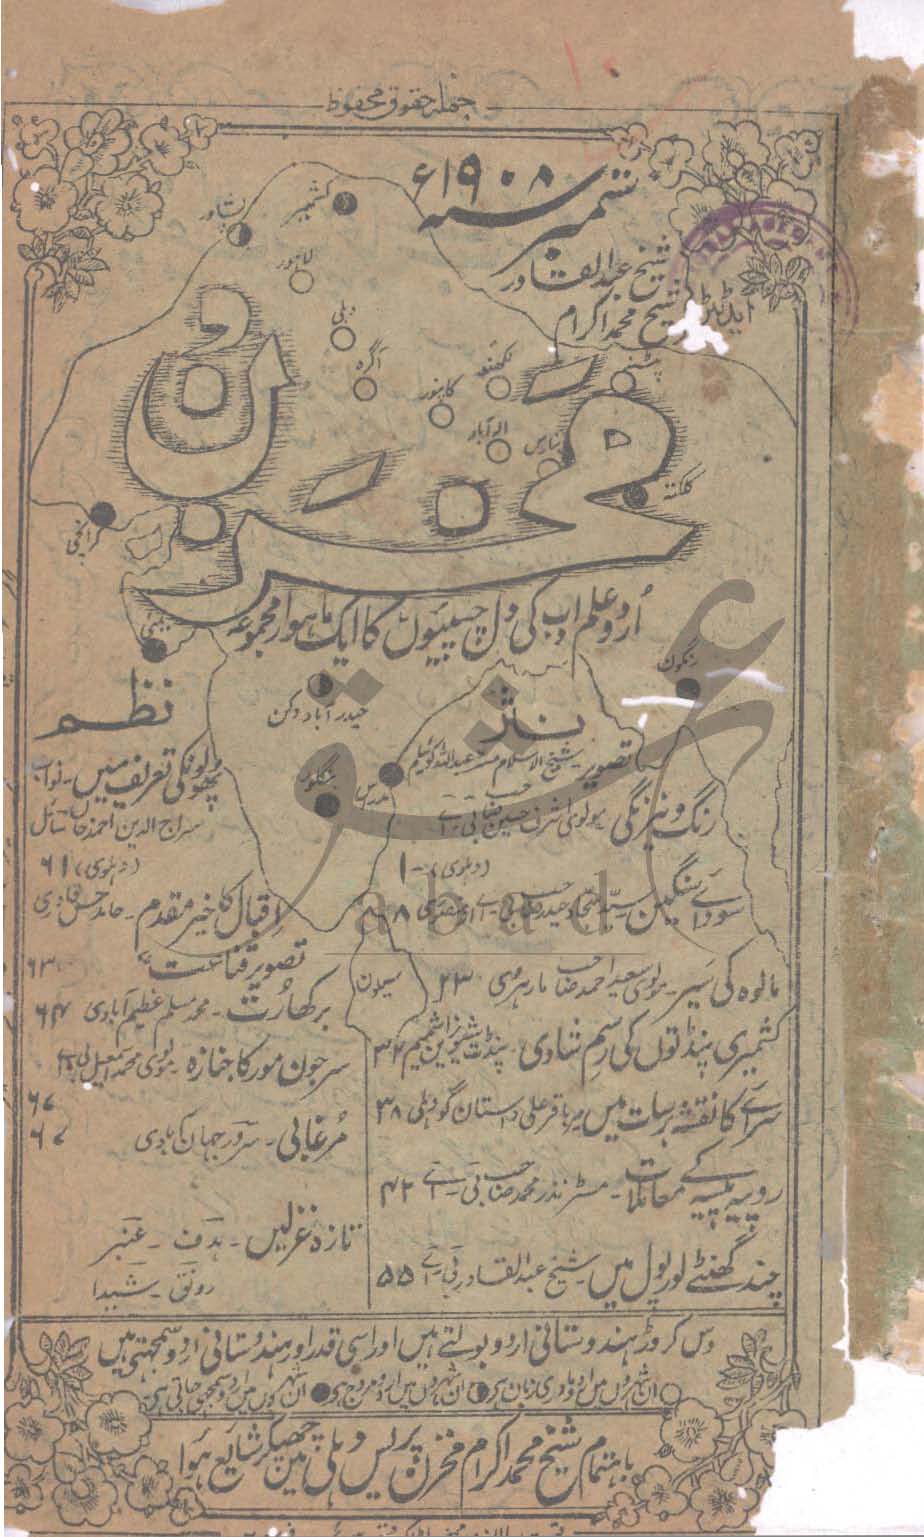 جملہ حقوق محفوظ
ستمبر سنہ ۱۹۰۸ء
شیخ عبدالقادر
ایڈیٹر شیخ محمد اکرام
کشمیر
پشاور
لاہور
دہلی
آگرہ
لکھنؤ
کانپور
پٹنہ
الہ آباد
بنارس
کلکتہ
کرانچی
مخزن
اُردو علم ادب کی دل چسپیوں کا ایک ماہوار مجموعہ
بمبئی
رنگون
حیدرآباد دکن
بنگلور
مدراس
سیلون
نثر
تصویر شیخ الاسلام مسٹر عبداللہ کوئیلم
رنگ و نیرنگی مولوی اشرف حسین صاحب بی۔ اے
(دہلوی) - ۱
سودائے سنگین سید سجاد حیدر صاحب بی۔ اے ۸
مالوہ کی سیر۔ مولوی سعید احمد صاحب مارہروی ۲۳
کشمیری پنڈتوں کی رسم شادی۔ پنڈت ۳۴
سرائے کا نقشہ برسات میں میر باقر علی داستان گو دہلی ۳۸
روپیہ پیسہ کے معاملات۔ مسٹر نذر محمد صاحب بی۔ اے ۴۲
چند گھنٹے لورپول میں۔ شیخ عبدالقادر بی۔ اے ۵۵
نظم
پھولونکی تعریف میں۔ نواب
سراج الدین احمد خاں سائل
(دہلوی) ۶۱
اقبال کا خیر مقدم۔ حامد حسن قادری
تصویر قناعت ۶۳
برکھا رُت۔ محمد مسلم عظیم آبادی ۶۴
سر جون مور کا جنازہ۔ مولوی محمد اسمعیل بی اے
۶۷
مُرغابی۔ سرور جہان آبادی ۶۷
تازہ غزلیں۔ ہدف۔ عنبر
رونق۔ شیدا
دس کروڑ ہندوستانی اردو بولتے ہیں اور اسی قدر اور ہندوستانی اردو سمجھتے ہیں
ان شہروں میں اردو مادری زبان ہی ان شہروں میں اردو مروج ہی ان شہروں میں اردو سمجھی جاتی ہی
باہتمام شیخ محمد اکرام مخزن پریس دہلی میں چھپکر شایع ہوا
عشق
abad